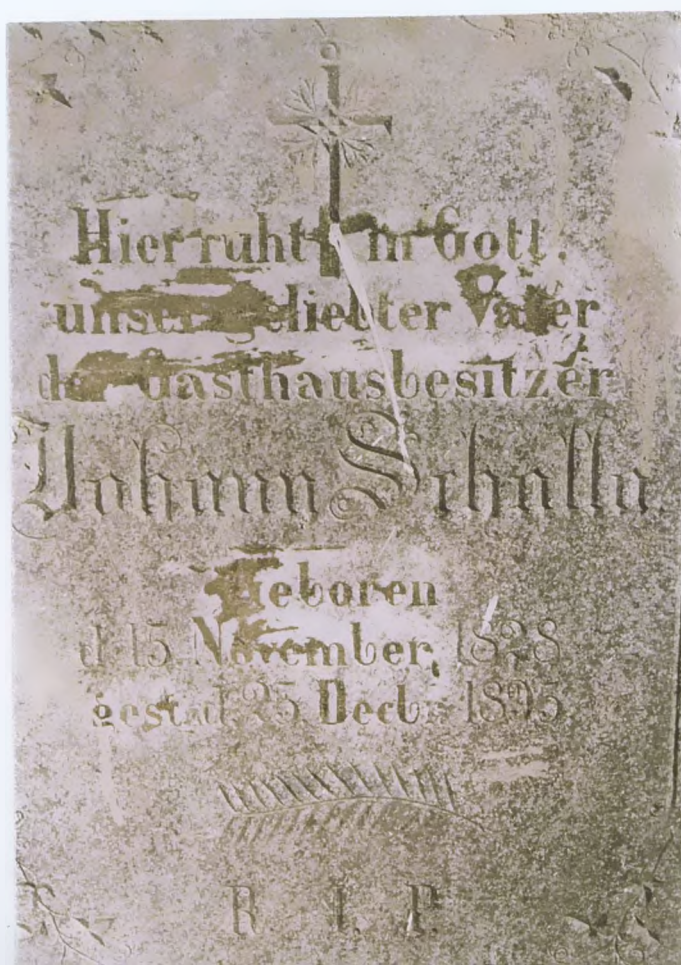 Hier ruht in Gott.
unser geliebter Vater
der Gasthausbesitzer
Johann Scholla.
Geboren
d. 15. November, 1828.
gest. d. 25. Decbr 1895.
R. I. P.